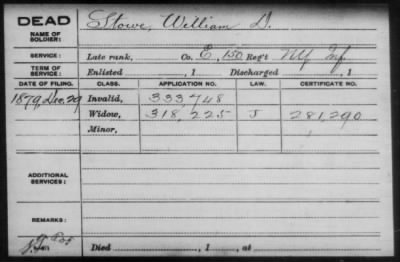 DEAD Stowe, William D.
NAME OF SOLDIER:
SERVICE: Late rank, Co. E, 150 Reg't NY Inf
TERM OF SERVICE: Enlisted , 1 Discharged , 1
DATE OF FILING. CLASS. APPLICATION NO. LAW. CERTIFICATE NO.
1879, Dec. 29 Invalid, 333,748
Widow, 318,225 J 281,290
Minor,
ADDITIONAL SERVICES:
REMARKS:
Died , 1 , at